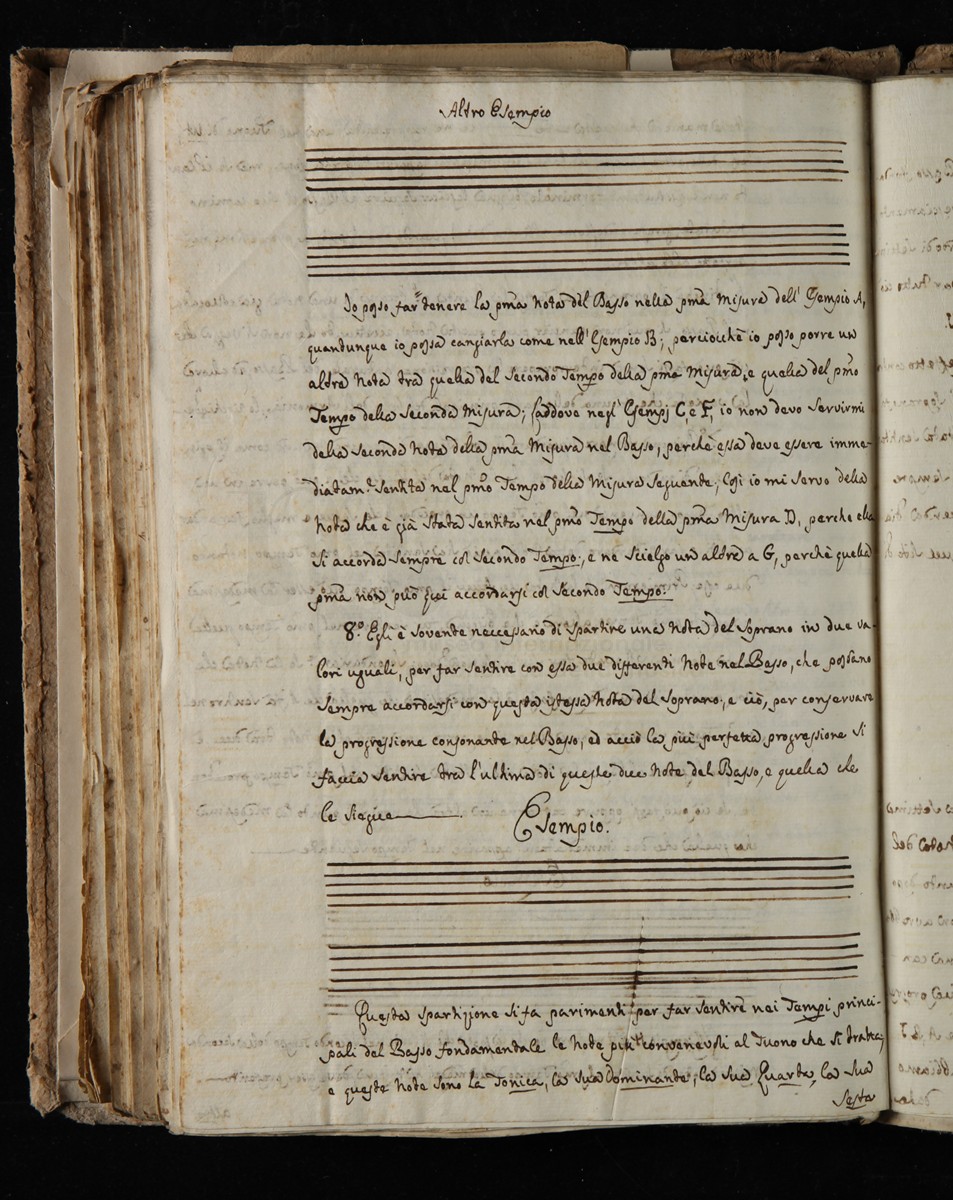 Altro Esempio
Io posso far tenere la pma nota del Basso nella pma Misura dell' Esempio A,
quandunque io possa cangiarla come nell' Esempio B; perciocchè io posso porre un
altra nota tra quella del Secondo Tempo della pma Misura, e quella del pmo
Tempo della Seconda Misura; laddove negl' Esempj C, e F, io non devo servirmi
della seconda nota della pma Misura nel Basso, perchè essa deve essere imme-
diatam.te sentita nel pmo Tempo della Misura seguente; Così io mi servo della
nota che è già stata sentita nel pmo Tempo della pma Misura D, perche ella
si accorda sempre col Secondo Tempo:, e ne scielgo un altra a G, perchè quella
pma non può quì accordarsi col Secondo Tempo:
8.o Egli è sovente neccessario di spartire una nota del Soprano in due va-
lori uguali, per far sentire con essa due differenti note nel Basso, che possano
sempre accordarsi con questa istessa nota del Soprano:, e ciò, per conservare
la progressione consonante nel Basso, ed acciò la più perfetta progressione si
faccia sentire tra l'ultima di queste due note del Basso, e quella che
le siegue
Esempio.
Questa spartizione si fa parimenti per far sentire nei Tempi princi-
pali del Basso fondamentale le note più convenevoli al Tuono che si tratta;
e queste note sono la Tonica, la sua Dominante, la sua Quarta, la sua
Sesta